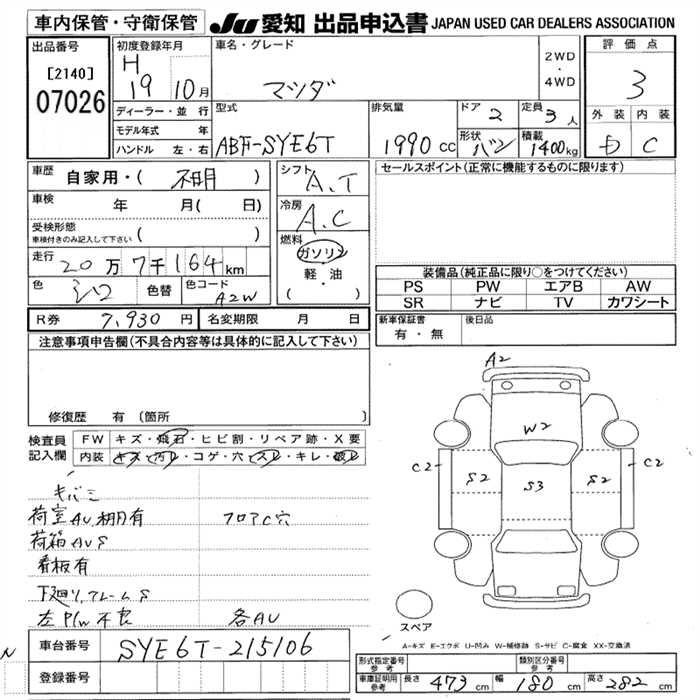 車内保管・守衛保管
JU 愛知 出品申込書 JAPAN USED CAR DEALERS ASSOCIATION
出品番号
[2140]
07026
初度登録年月
H
19 10月
ディーラー・並行
モデル年式 年
ハンドル 左・右
車名・グレード
マツダ
2WD
・
4WD
型式
ABF-SYE6T
排気量
1990 cc
ドア 2
定員 3 人
形状 バン
積載 1400kg
評価点
3
外装 内装
D C
車歴
自家用・( 不明 )
車検
年 月( 日)
受検形態
車検付きのみ記入して下さい ( )
走行
20 万 7 千 164 km
色 シロ 色替 色コード A2W
シフト
A.T
冷房
A.C
燃料
ガソリン
軽・油
( )
セールスポイント(正常に機能するものに限ります)
装備品(純正品に限り○をつけてください)
PS PW エアB AW
SR ナビ TV カワシート
新車保証書
有・無
後日品
R券 7,930 円 名変期限 月 日
注意事項申告欄(不具合内容等は具体的に記入して下さい)
修復歴 有 (箇所
検査員
記入欄
FW キズ・飛石・ヒビ割・リペア跡・X要
内装 キズ・汚レ・コゲ・穴・スレ・キレ・破レ
キバミ
荷室AU 棚有 フロアC穴
荷箱AUS
看板有
下廻り、フレームS
左P/W不良 各AU
A2
W2
C2 S2 S3 S2 C2
スペア
A-キズ E-エクボ U-凹み W-補修跡 S-サビ C-腐食 XX-交換済
車台番号 SYE6T-215106
登録番号
N
形式指定番号
参考
類別区分番号
参考
車庫証明用
参考
長さ 473 cm 幅 180 cm 高さ 282 cm